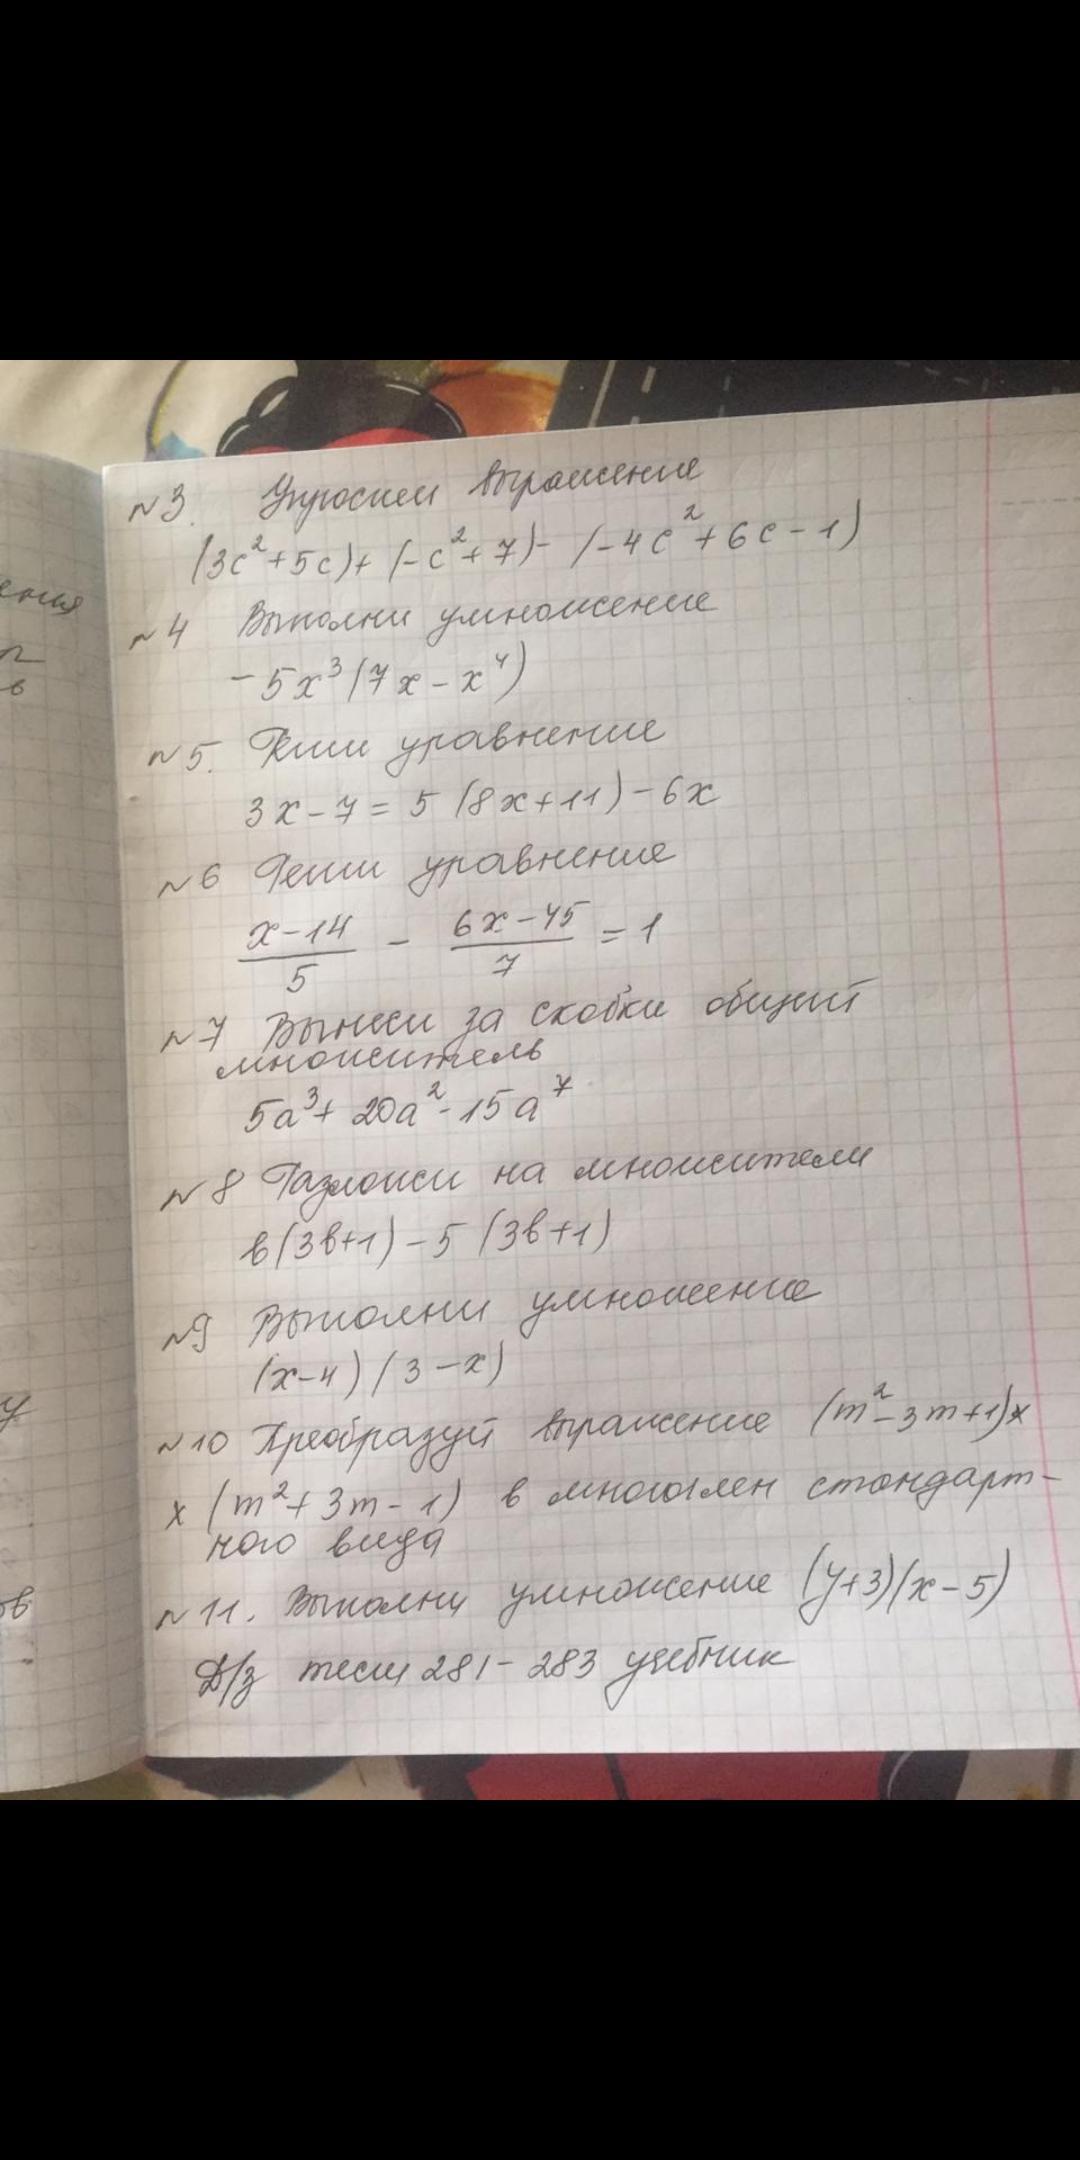 №3. Упростим выражение
(3c²+5c)+(-c²+7)-(-4c²+6c-1)
№4 Выполни умножение
-5x³(7x-x⁴)
№5. Реши уравнение
3x-7=5(8x+11)-6x
№6 Реши уравнение
x-14/5 - 6x-45/7 = 1
№7 Вынеси за скобки общий
множитель
5a³+20a²-15a⁷
№8 Разложи на множители
в(3в+1)-5(3в+1)
№9 Выполни умножение
(x-4)(3-x)
№10 Преобразуй выражение (m²-3m+1)×
×(m²+3m-1) в многочлен стандарт-
ного вида
№11. Выполни умножение (y+3)(x-5)
Д/з 281-283 учебник
ения